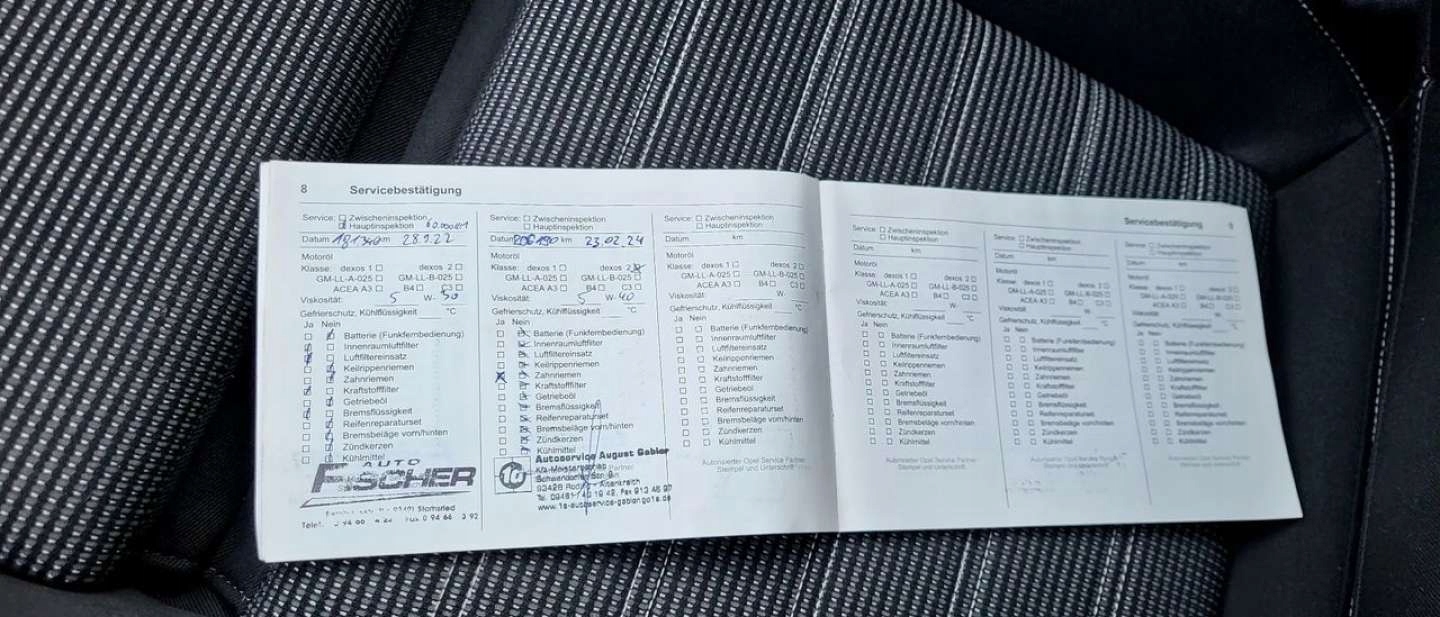 8 Servicebestätigung
Service: ☐ Zwischeninspektion
☒ Hauptinspektion
Datum km 28.9.22
Motoröl
Klasse: dexos 1 ☐ dexos 2 ☐
GM-LL-A-025 ☐ GM-LL-B-025 ☐
ACEA A3 ☐ B4 ☐ C3 ☐
Viskosität: 5 W- 30
Gefrierschutz, Kühlflüssigkeit °C
Ja Nein
Batterie (Funkfernbedienung)
Innenraumluftfilter
Luftfiltereinsatz
Keilrippenriemen
Zahnriemen
Kraftstofffilter
Getriebeöl
Bremsflüssigkeit
Reifenreparaturset
Bremsbeläge vorn/hinten
Zündkerzen
Kühlmittel
AUTO
FISCHER
Stamsried
Service: ☐ Zwischeninspektion
☐ Hauptinspektion
Datum 206190 km 23.02.24
Motoröl
Klasse: dexos 1 ☐ dexos 2 ☒
GM-LL-A-025 ☐ GM-LL-B-025 ☐
ACEA A3 ☐ B4 ☐ C3 ☐
Viskosität: 5 W- 40
Gefrierschutz, Kühlflüssigkeit °C
Ja Nein
Batterie (Funkfernbedienung)
Innenraumluftfilter
Luftfiltereinsatz
Keilrippenriemen
Zahnriemen
Kraftstofffilter
Getriebeöl
Bremsflüssigkeit
Reifenreparaturset
Bremsbeläge vorn/hinten
Zündkerzen
Kühlmittel
Autoservice August Gabler
Kfz-Meisterbetrieb
Altenkreith
Service: ☐ Zwischeninspektion
☐ Hauptinspektion
Datum km
Motoröl
Klasse: dexos 1 ☐ dexos 2 ☐
GM-LL-A-025 ☐ GM-LL-B-025 ☐
ACEA A3 ☐ B4 ☐ C3 ☐
Viskosität: W-
Gefrierschutz, Kühlflüssigkeit °C
Ja Nein
☐ ☐ Batterie (Funkfernbedienung)
☐ ☐ Innenraumluftfilter
☐ ☐ Luftfiltereinsatz
☐ ☐ Keilrippenriemen
☐ ☐ Zahnriemen
☐ ☐ Kraftstofffilter
☐ ☐ Getriebeöl
☐ ☐ Bremsflüssigkeit
☐ ☐ Reifenreparaturset
☐ ☐ Bremsbeläge vorn/hinten
☐ ☐ Zündkerzen
☐ ☐ Kühlmittel
Autorisierter Opel Service Partner
Stempel und Unterschrift
Servicebestätigung 9
Service: ☐ Zwischeninspektion
☐ Hauptinspektion
Datum km
Motoröl
Klasse: dexos 1 ☐ dexos 2 ☐
GM-LL-A-025 ☐ GM-LL-B-025 ☐
ACEA A3 ☐ B4 ☐ C3 ☐
Viskosität: W-
Gefrierschutz, Kühlflüssigkeit °C
Ja Nein
☐ ☐ Batterie (Funkfernbedienung)
☐ ☐ Innenraumluftfilter
☐ ☐ Luftfiltereinsatz
☐ ☐ Keilrippenriemen
☐ ☐ Zahnriemen
☐ ☐ Kraftstofffilter
☐ ☐ Getriebeöl
☐ ☐ Bremsflüssigkeit
☐ ☐ Reifenreparaturset
☐ ☐ Bremsbeläge vorn/hinten
☐ ☐ Zündkerzen
☐ ☐ Kühlmittel
Autorisierter Opel Service Partner
Stempel und Unterschrift
Service: ☐ Zwischeninspektion
☐ Hauptinspektion
Datum km
Motoröl
Klasse: dexos 1 ☐ dexos 2 ☐
GM-LL-A-025 ☐ GM-LL-B-025 ☐
ACEA A3 ☐ B4 ☐ C3 ☐
Viskosität: W-
Gefrierschutz, Kühlflüssigkeit °C
Ja Nein
☐ ☐ Batterie (Funkfernbedienung)
☐ ☐ Innenraumluftfilter
☐ ☐ Luftfiltereinsatz
☐ ☐ Keilrippenriemen
☐ ☐ Zahnriemen
☐ ☐ Kraftstofffilter
☐ ☐ Getriebeöl
☐ ☐ Bremsflüssigkeit
☐ ☐ Reifenreparaturset
☐ ☐ Bremsbeläge vorn/hinten
☐ ☐ Zündkerzen
☐ ☐ Kühlmittel
Autorisierter Opel Service Partner
Stempel und Unterschrift
Service: ☐ Zwischeninspektion
☐ Hauptinspektion
Datum km
Motoröl
Klasse: dexos 1 ☐ dexos 2 ☐
GM-LL-A-025 ☐ GM-LL-B-025 ☐
ACEA A3 ☐ B4 ☐ C3 ☐
Viskosität: W-
Gefrierschutz, Kühlflüssigkeit °C
Ja Nein
☐ ☐ Batterie (Funkfernbedienung)
☐ ☐ Innenraumluftfilter
☐ ☐ Luftfiltereinsatz
☐ ☐ Keilrippenriemen
☐ ☐ Zahnriemen
☐ ☐ Kraftstofffilter
☐ ☐ Getriebeöl
☐ ☐ Bremsflüssigkeit
☐ ☐ Reifenreparaturset
☐ ☐ Bremsbeläge vorn/hinten
☐ ☐ Zündkerzen
☐ ☐ Kühlmittel
Autorisierter Opel Service Partner
Stempel und Unterschrift